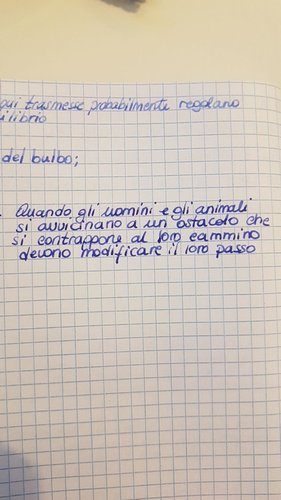 qui trasmesse probabilmente regolano
ilibrio
del bulbo;
Quando gli uomini e gli animali
si avvicinano a un ostacolo che
si contrappone al loro cammino
devono modificare il loro passo